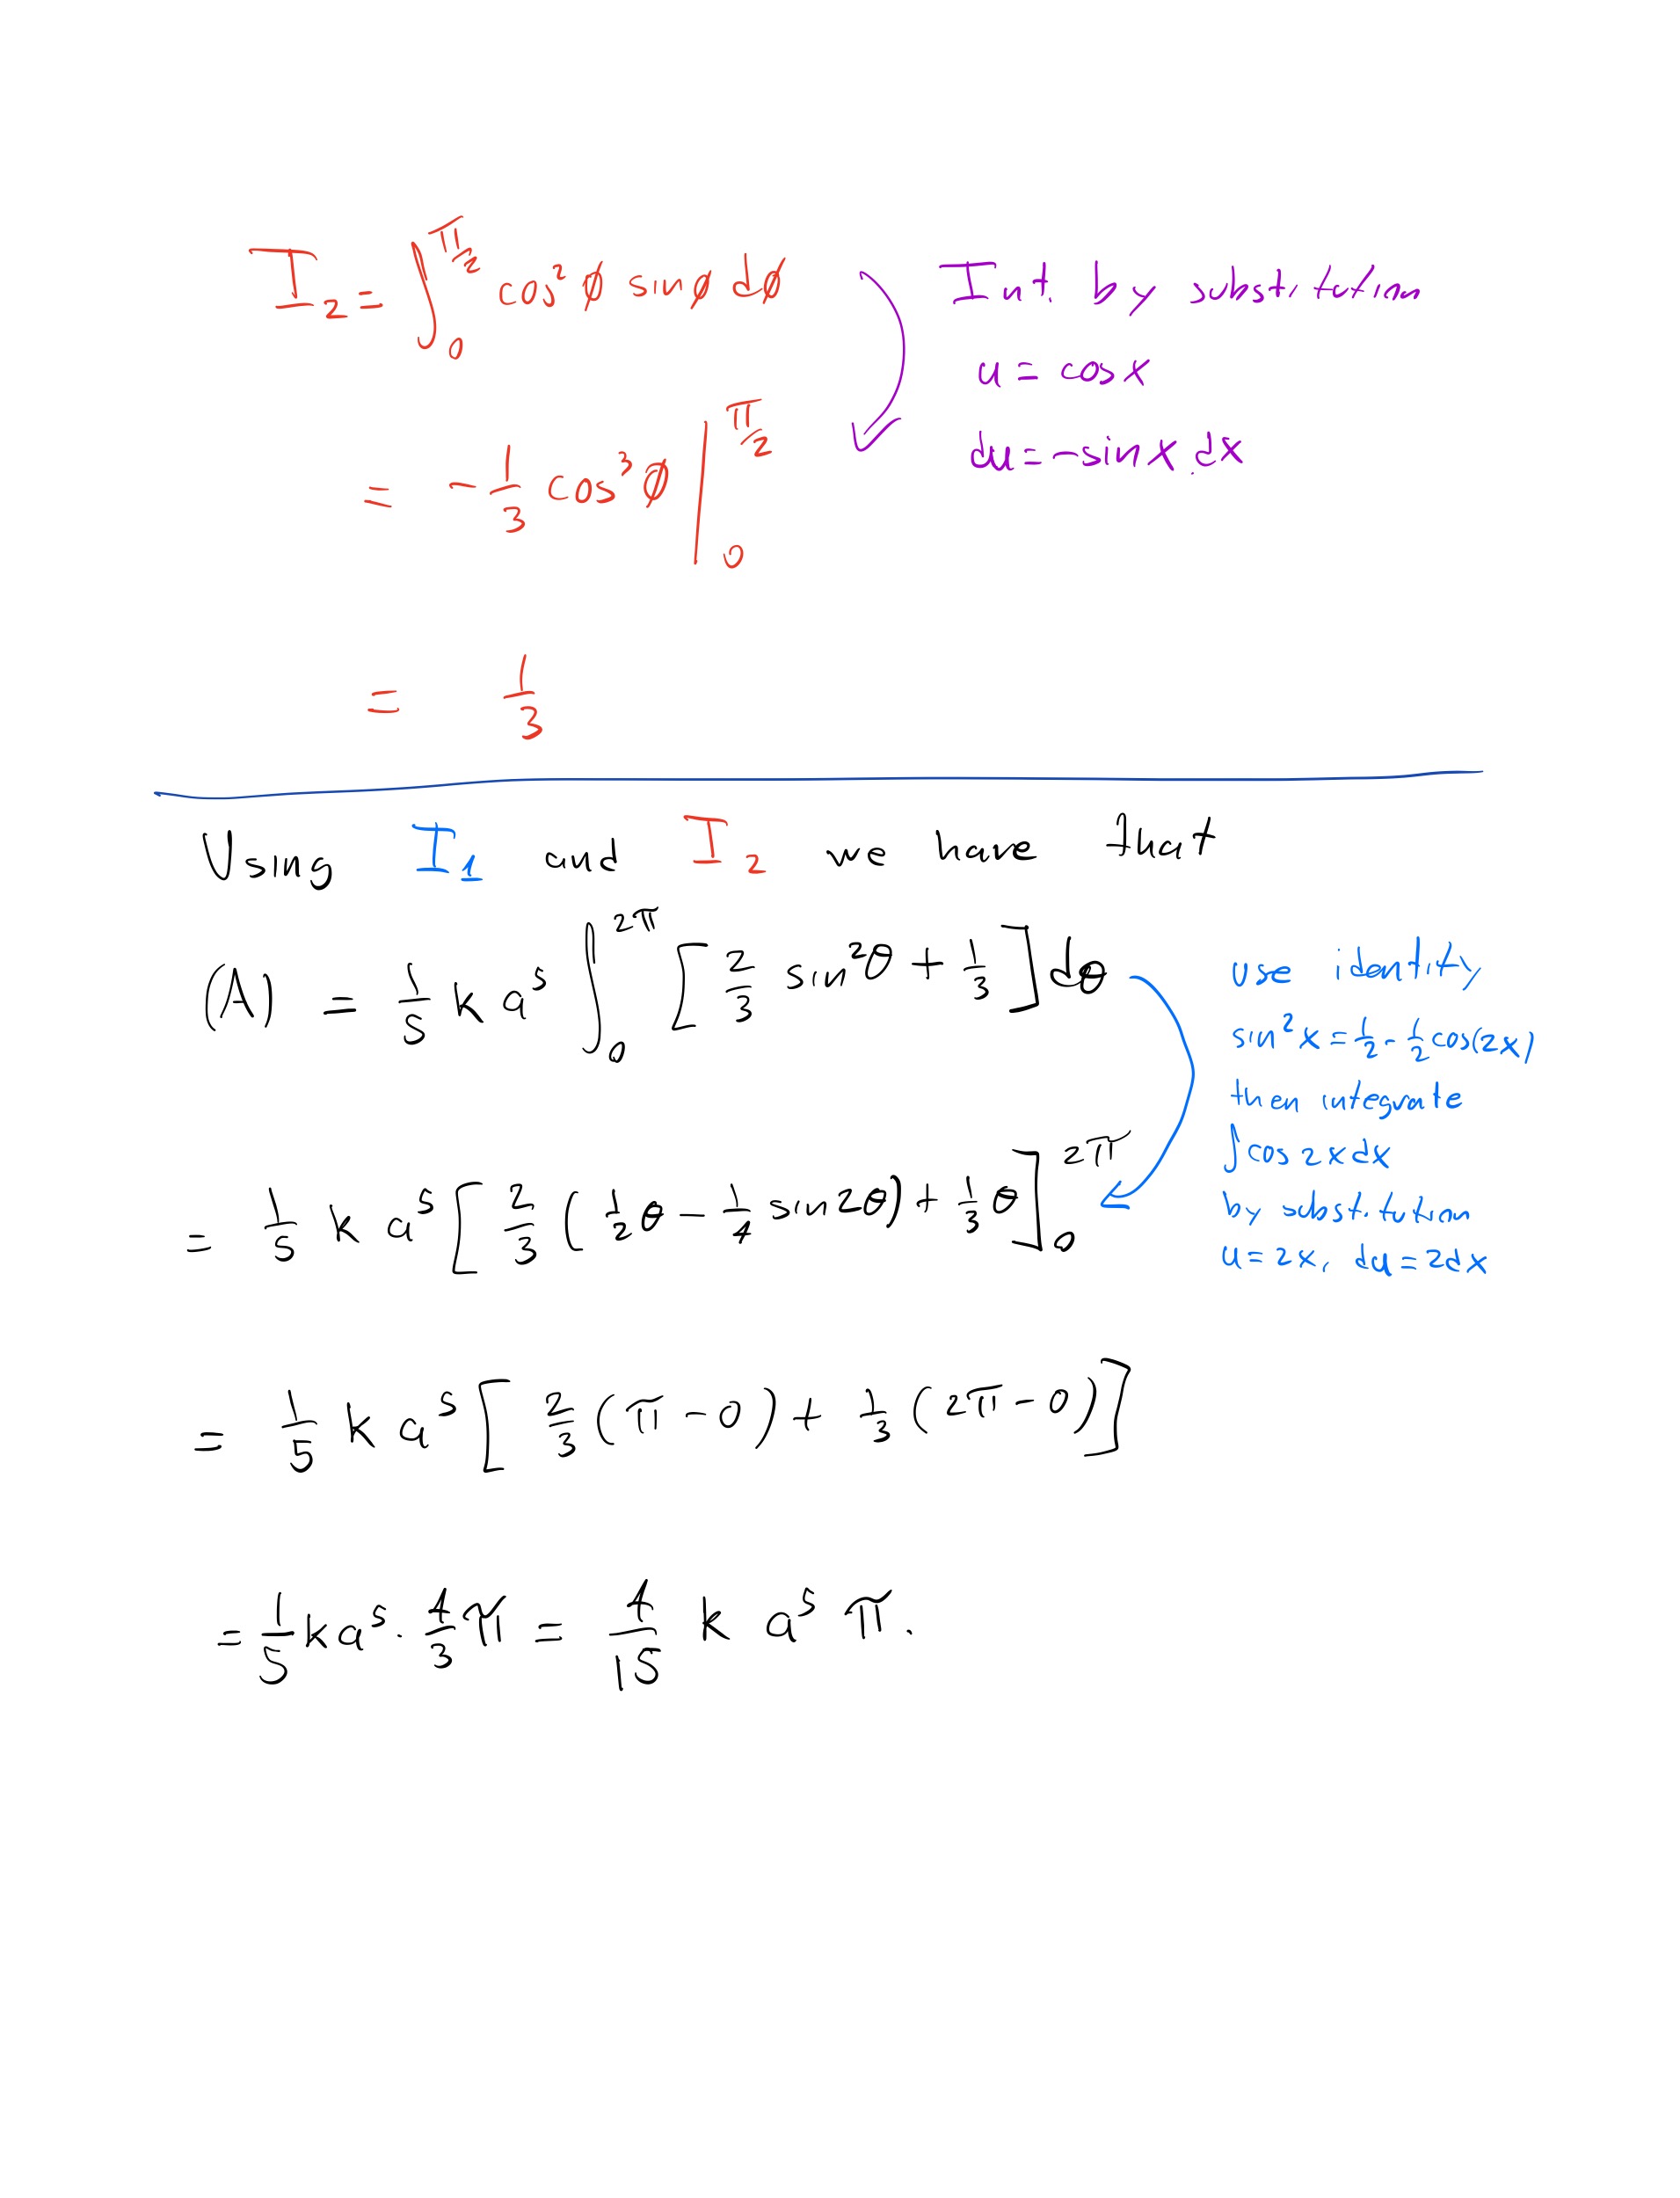 I₂ = ∫₀^(π/2) cos²φ sinφ dφ
Int. by substitution
u = cosx
du = -sinx.dx
= -1/3 cos³φ |₀^(π/2)
= 1/3
Using I₁ and I₂ we have that
(A) = 1/5 k a⁵ ∫₀^(2π) [2/3 sin²θ + 1/3] dθ
use identity
sin²x = 1/2 - 1/2 cos(2x)
then integrate
∫cos 2x dx
by substitution
u = 2x, du = 2dx
= 1/5 k a⁵ [2/3 (1/2 θ - 1/4 sin 2θ) + 1/3 θ]₀^(2π)
= 1/5 k a⁵ [2/3 (π - 0) + 1/3 (2π - 0)]
= 1/5 k a⁵ · 4/3 π = 4/15 k a⁵ π.